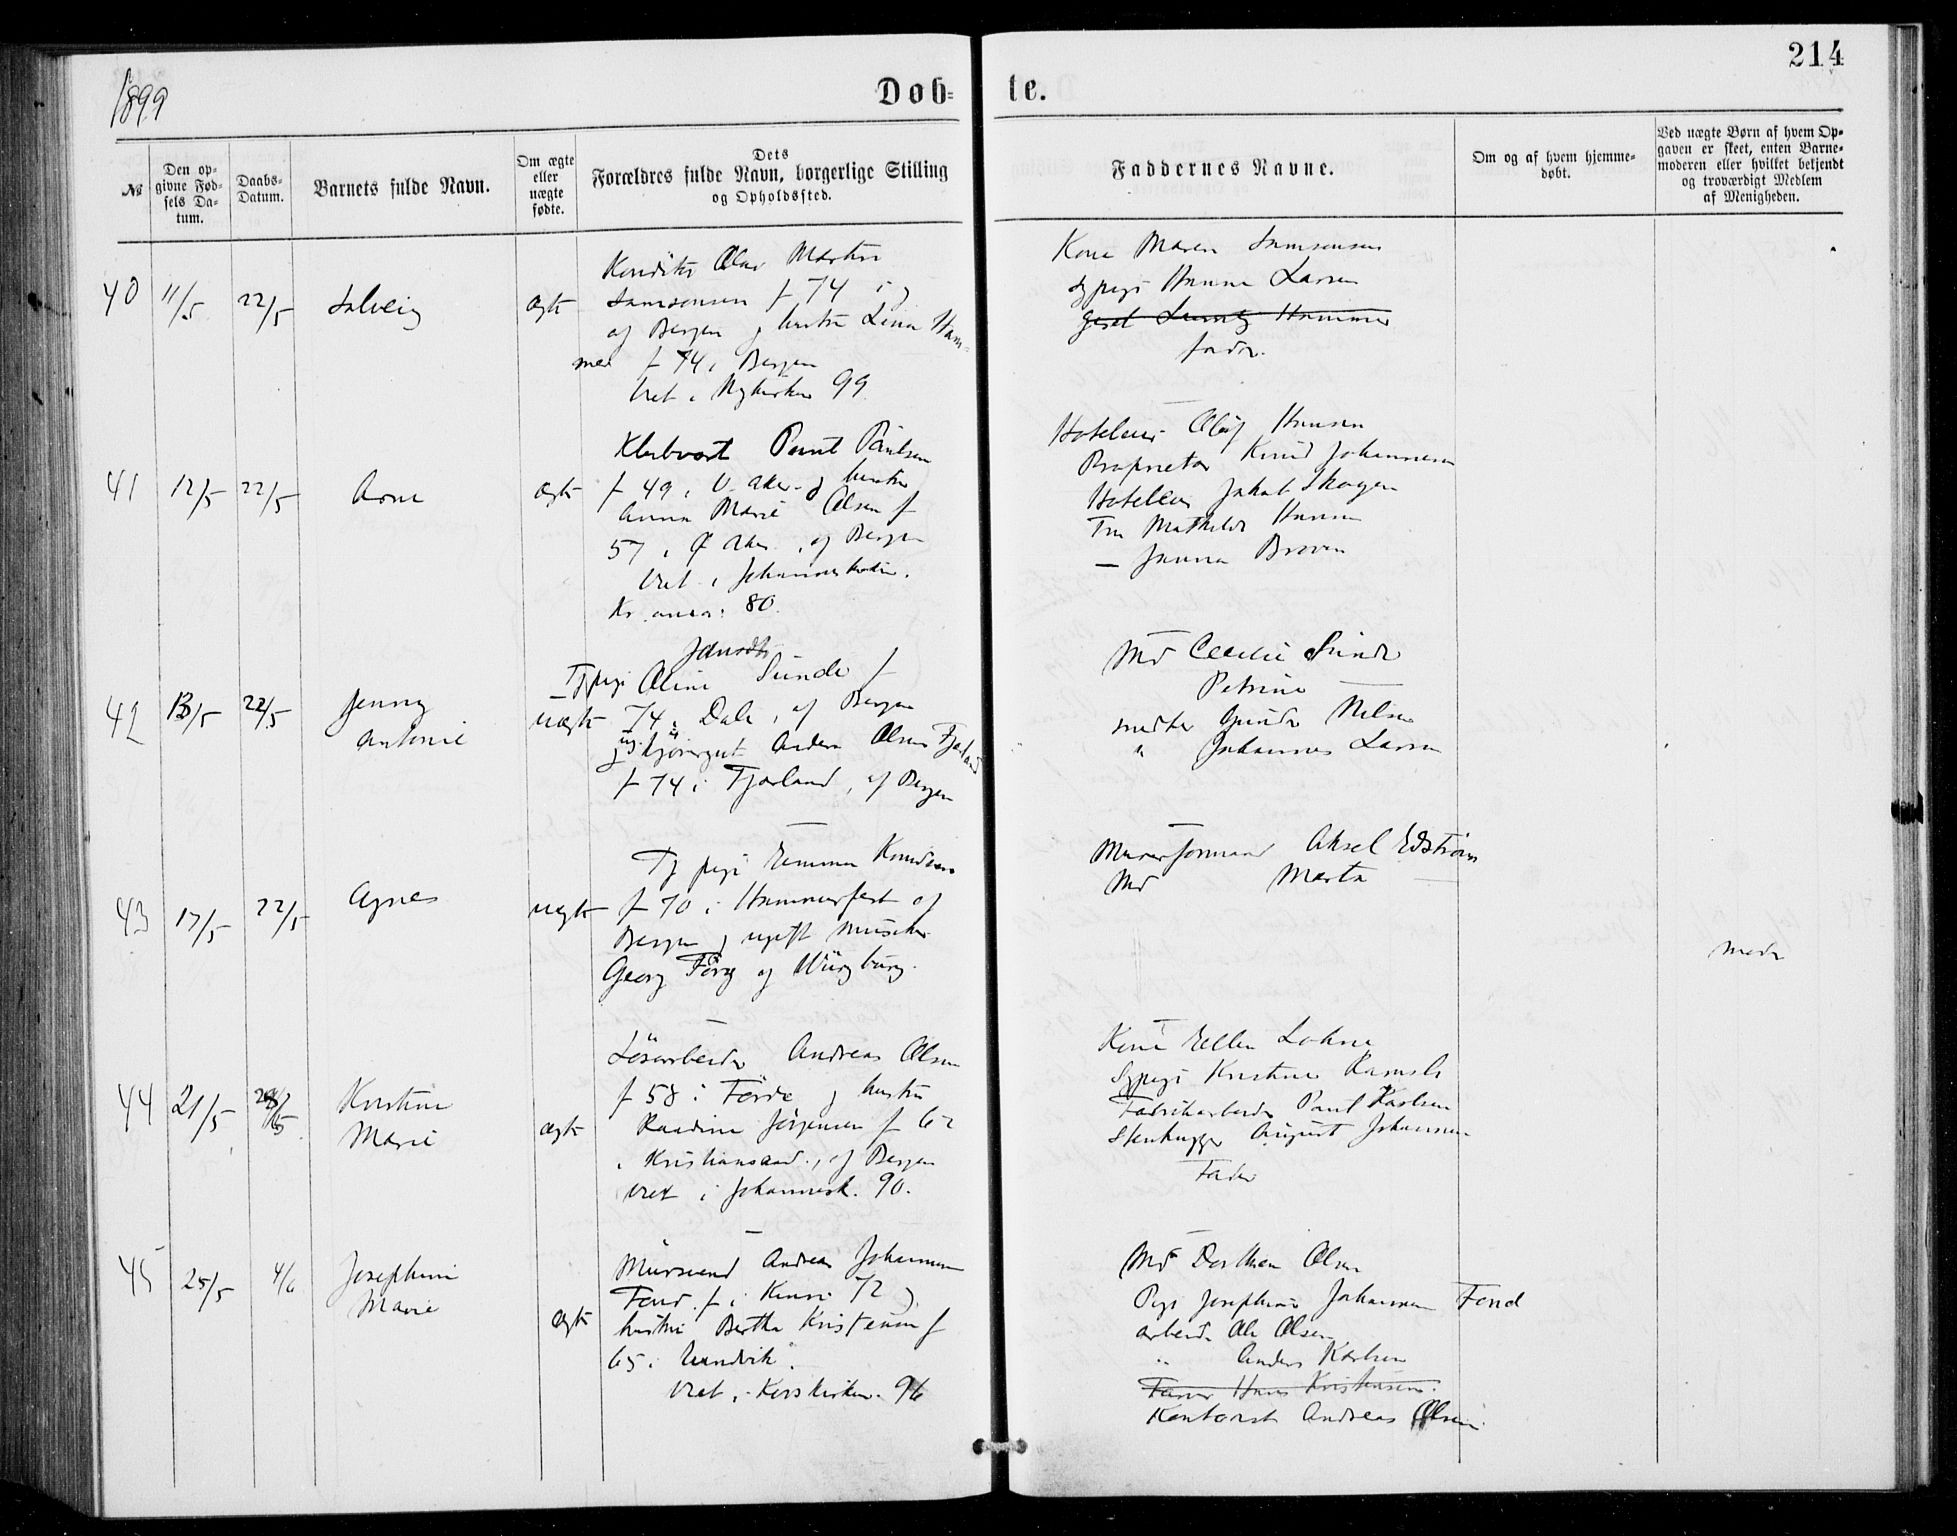 1899
Døb-
te.
214
№
Den op-
givne Fød-
sels Da-
tum.
Daabs-
Datum.
Barnets fulde Navn.
Om ægte
eller
nægte
fødte.
Dets
Forældres fulde Navn, borgerlige Stilling
og Opholdssted.
Faddernes Navne.
Om og af hvem hjemme-
døbt.
Ved uægte Børn af hvem Op-
gaven er skeet, enten Barne-
moderen eller hvilket bekjendt
og troværdigt Medlem
af Menigheden.
40
11/5
22/5
Solveig
ægte
Konditor Olav Martin
Samsonsen f 74 i
af Bergen hustru Lina Ham-
mer f 74 i Bergen
Viet i Nykirken 99
Kone Maren Samsonsen
Sypige Hanna Larsen
Hammer
fader.
41
12/5
22/5
Arne
ægte
Klubvært Paul Paulsen
f 49 i V. Aker hustru
Anna Marie Olsen f
57 i Ø Aker, af Bergen
Viet i Johanneskirken.
80.
Hotelier Oluf Hansen
Proprietær Knud Johannesen
Hotelier Jakob Skagen
Fru Mathilde Hansen
42
13/5
22/5
Jenny
Antonie
uægte
Tj pige Oline Sunde f
74 i Dale, af Bergen
ug. kjøregut Anders Olsen Fjærland
f 74 i Fjærland, af Bergen
Md Cecilie Sunde
Petrine —
Johannes Larsen
43
17/5
22/5
Agnes
uægte
Tj pige Emma Knudsen
f 70 i Hammerfest af
Bergen ugift musiker
Georg Förg af Würzburg.
Murerformand Aksel Edström
Md Marta —
moder
44
21/5
Kristine
Marie
ægte
Løsarbeider Andreas Olsen
f 58 i Førde hustru
Jørgensen f 62
i Kristiansand, af Bergen
viet i Johannesk. 90.
Kone Ellen Lohne
Sypige Kristine
Fabrikarbeider Paul Karlsen
Stenhugger August Johannesen
Fader
45
25/5
4/6
Josephine
Marie
ægte
Mursvend Andreas Johannesen
Fond f i 72
hustru Bertha Kristensen f
65 i
Viet i Korskirken 96
Md Dorthea Olsen
Pige Josephine Johannesen Fond
arbeider Ole Olsen
" Anders Karlsen
Hans Kristensen.
Kontorist Andreas Olsen